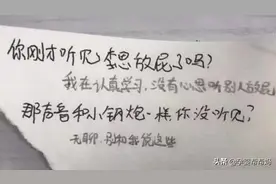 你刚才听见李思放屁了吗?
我在认真学习,没有心思听别人放屁
那声音和小钢炮一样你没听见?
无聊,别和我说这些